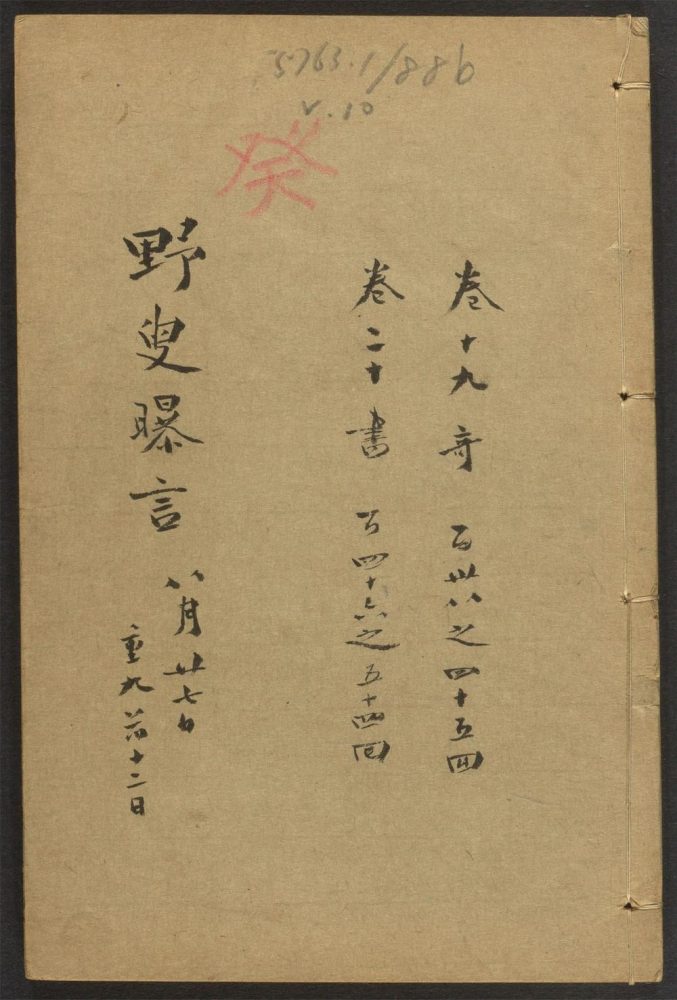 5763.1/88b
v.10
癸
卷十九 奇 百卅八之四十五回
卷二十 書 百四十六之五十四回
野叟曝言
八月廿七日
重九 十二日